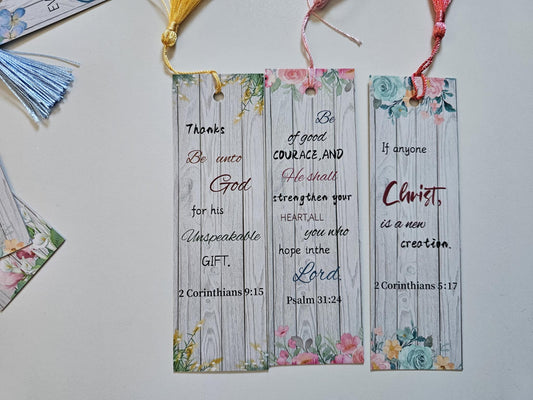 Thanks
Be unto
God
for his
Unspeakable
GIFT.
2 Corinthians 9:15
Be
of good
COURACE,AND
He shall
strengthen your
HEART,ALL
you who
hope inthe
Lord.
Psalm 31:24
If anyone
Christ,
is a new
creation.
2 Corinthians 5:17